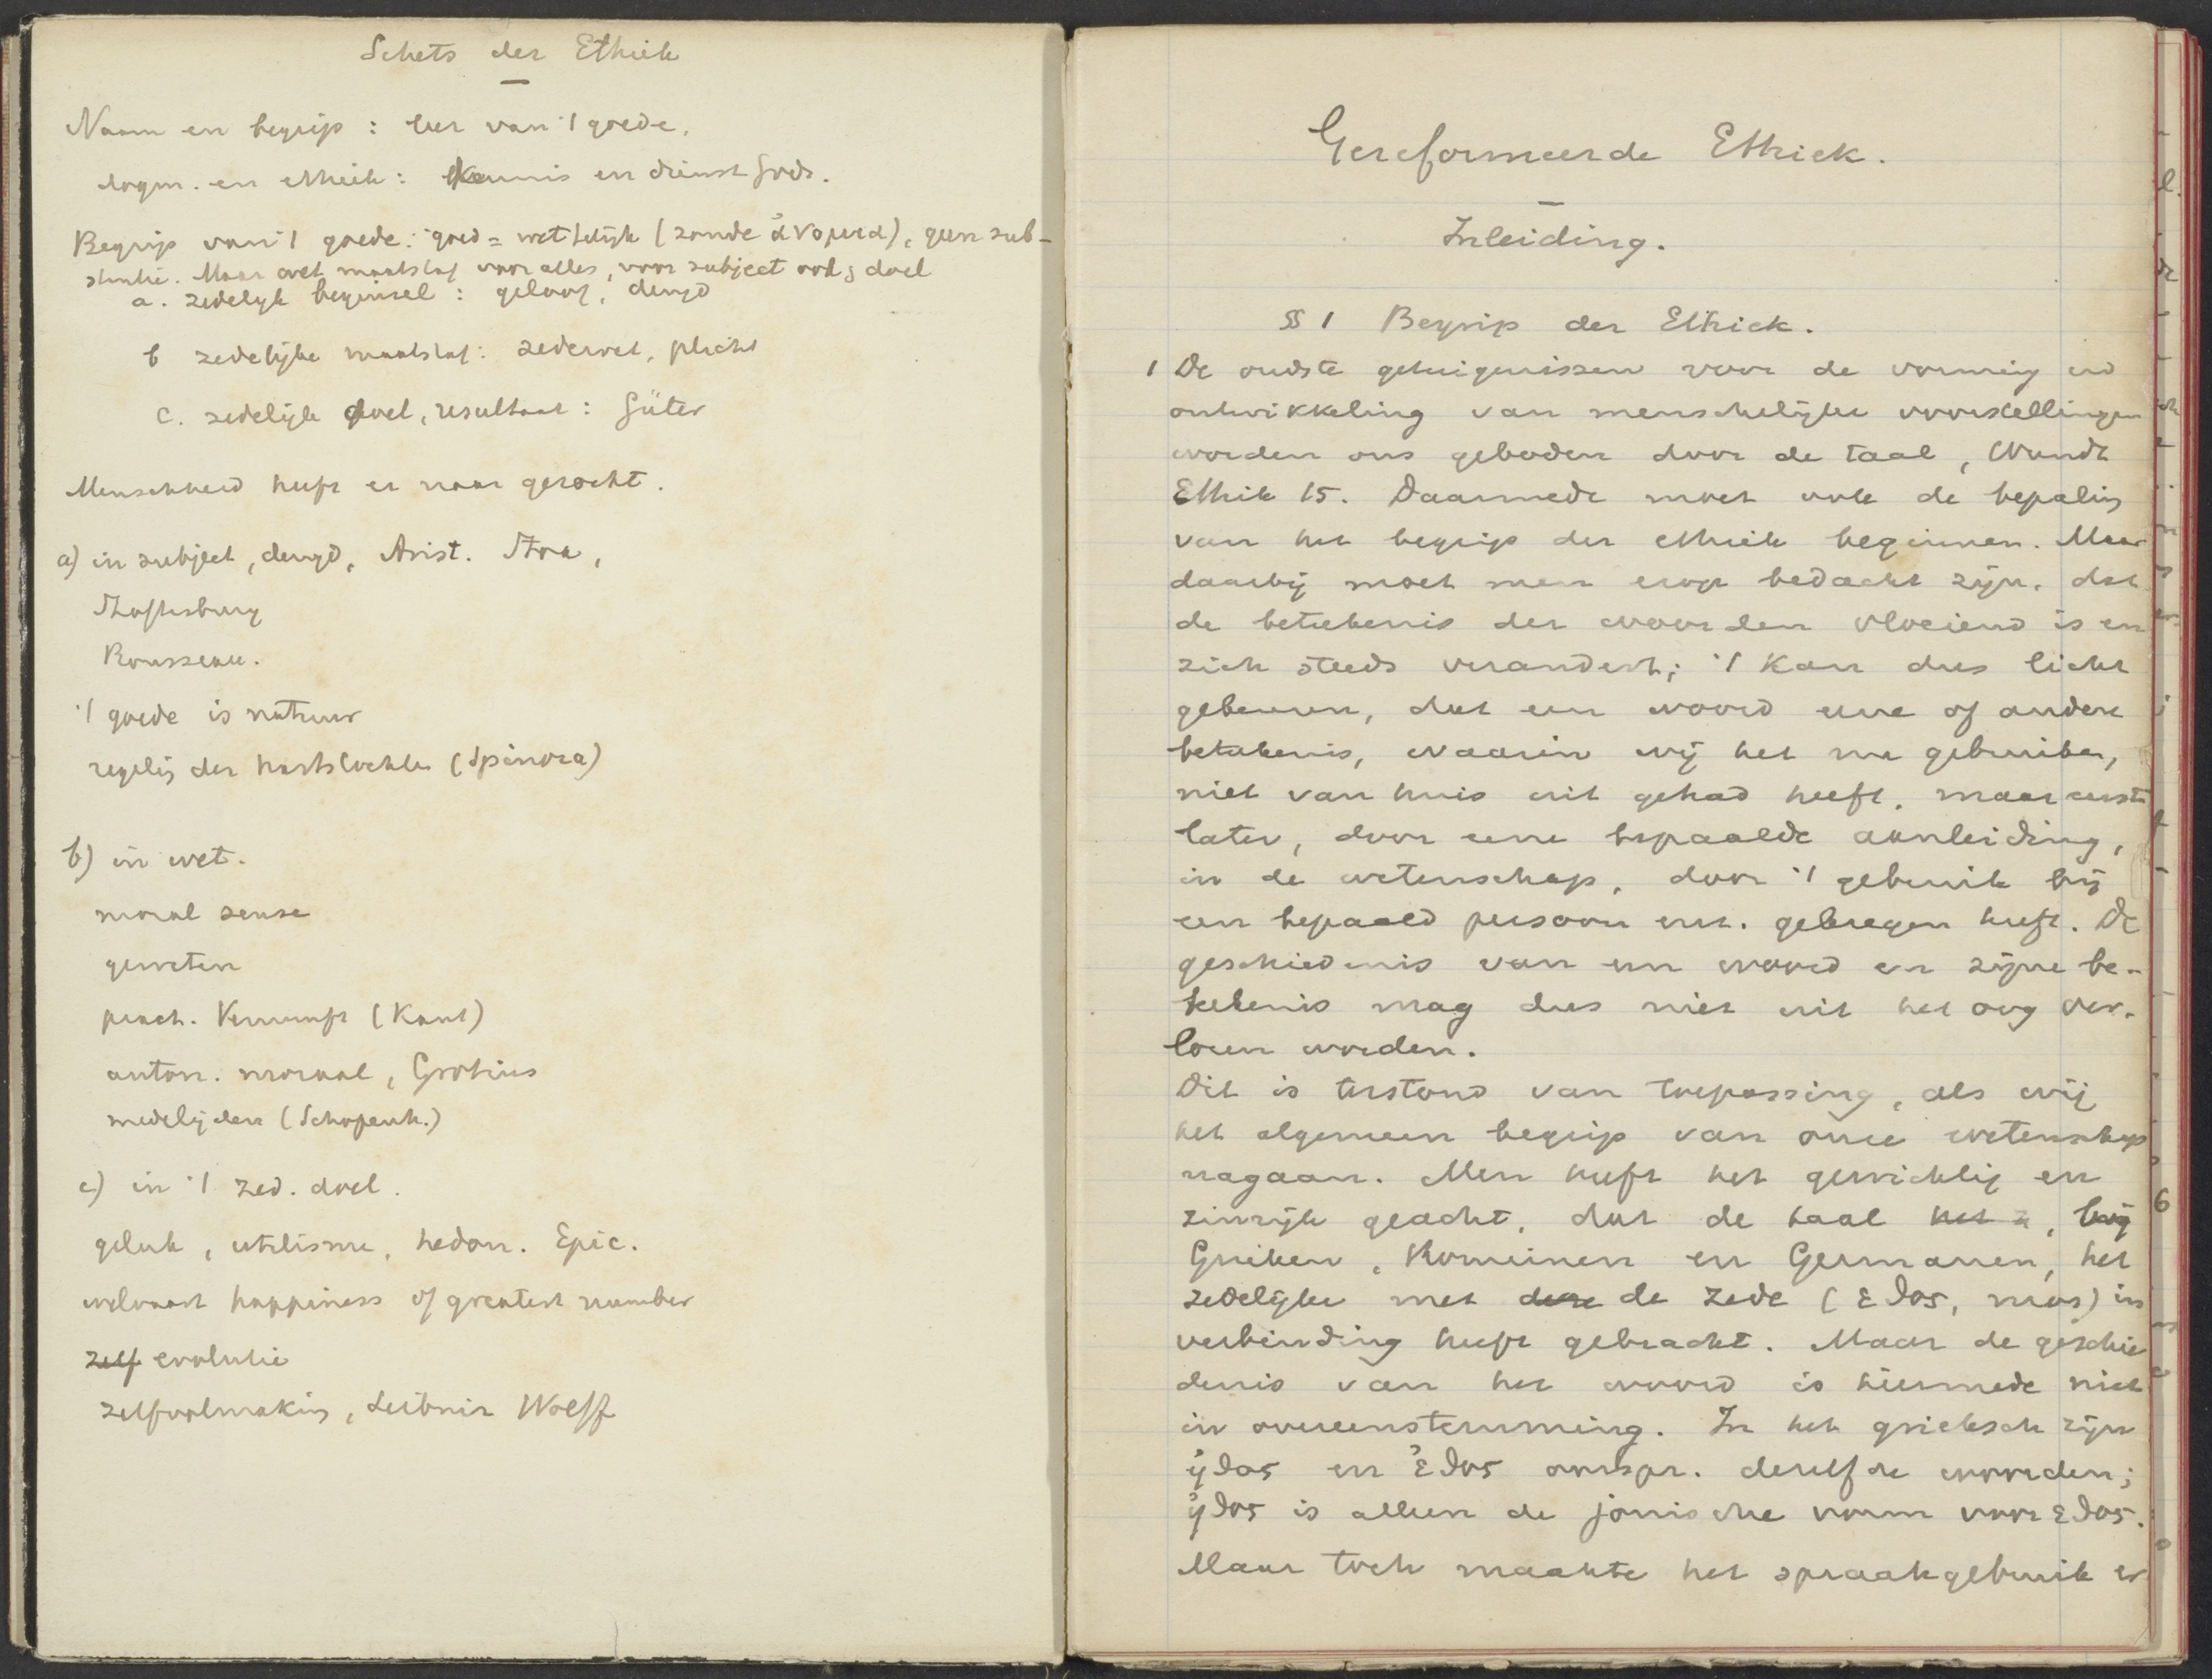 Schets der Ethiek
Naam en begrip : leer van 't goede.
dogm. en ethiek : kennis en dienst Gods.
Begrip van 't goede : goed = wettelijk (zonde ἀνομια), geen sub-
stantie. Maar wet maatstaf voor alles, voor subject ook & doel
a. zedelijk beginsel : geloof, deugd
b zedelijke maatstaf : zedewet, plicht
c. zedelijk doel, resultaat : Güter
Menschheid heeft er naar gezocht.
a) in subject, deugd, Arist. Stoa,
Shaftesbury
Rousseau.
't goede is natuur
regelig der hartstochten (Spinoza)
b) in wet.
moral sense
geweten
pract. Vernunft (Kant)
auton. moraal, Grotius
medelijden (Schopenh.)
c) in 't zed. doel.
geluk, utilisme, hedon. Epic.
welvaart happiness of greatest number
zelf evolutie
zelfvolmaking, Leibniz Wolff
Gereformeerde Ethiek.
Inleiding.
§§ 1 Begrip der Ethiek.
1 De oudste getuigenissen voor de vorming en
ontwikkeling van menschelijke voorstellingen
worden ons geboden door de taal, Wundt
Ethik 15. Daarmede moet ook de bepaling
van het begrip der ethiek beginnen. Maar
daarbij moet men erop bedacht zijn, dat
de beteekenis der woorden vloeiend is en
zich steeds verandert; 't kan dus licht
gebeuren, dat een woord eene of andere
betekenis, waarin wij het nu gebruiken,
niet van huis uit gehad heeft, maar eerst
later, door eene bepaalde aanleiding,
in de wetenschap, door 't gebruik bij
een bepaald persoon enz. gekregen heeft. De
geschiedenis van een woord en zijne be-
tekenis mag dus niet uit het oog ver-
loren worden.
Dit is terstond van toepassing, als wij
het algemeen begrip van onze wetenschap
nagaan. Men heeft het gewichtig en
zinrijk geacht, dat de taal het z, bij
Grieken, Romeinen en Germanen, het
zedelijke met deze de zede (εθος, mos) in
verbinding heeft gebracht. Maar de geschie
denis van het woord is hiermede niet
in overeenstemming. In het grieksch zijn
ἠθος en ἐθος oorspr. dezelfde woorden;
ἠθος is alleen de jonische vorm voor εθος.
Maar toch maakte het spraakgebruik er